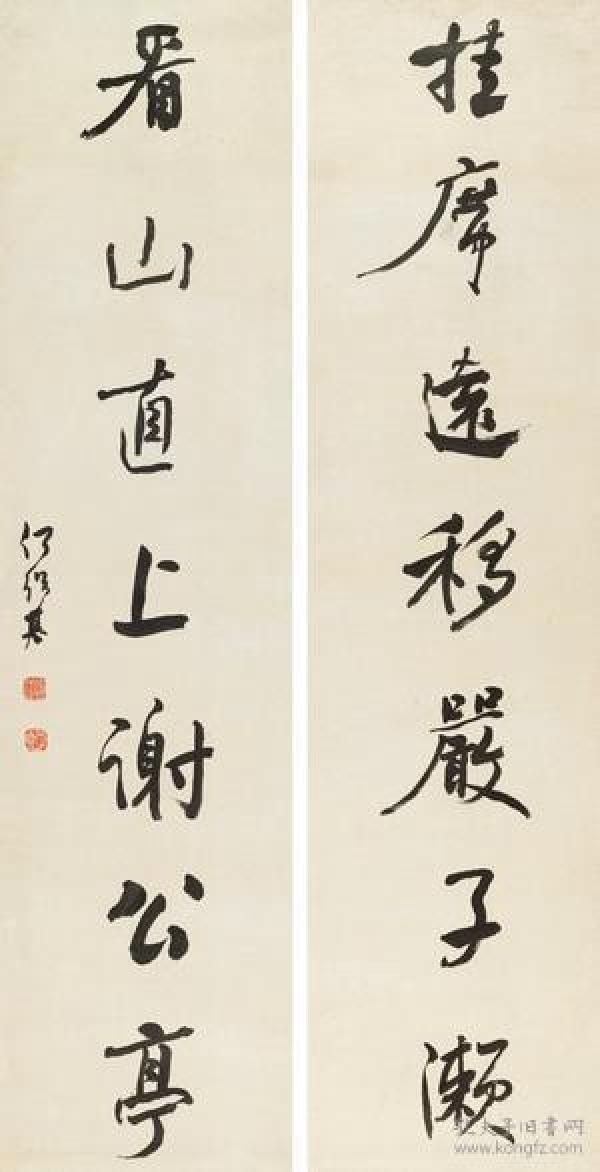 挂席遠移嚴子瀨
看山直上谢公亭
何紹基
孔夫子旧書网
www.kongfz.com